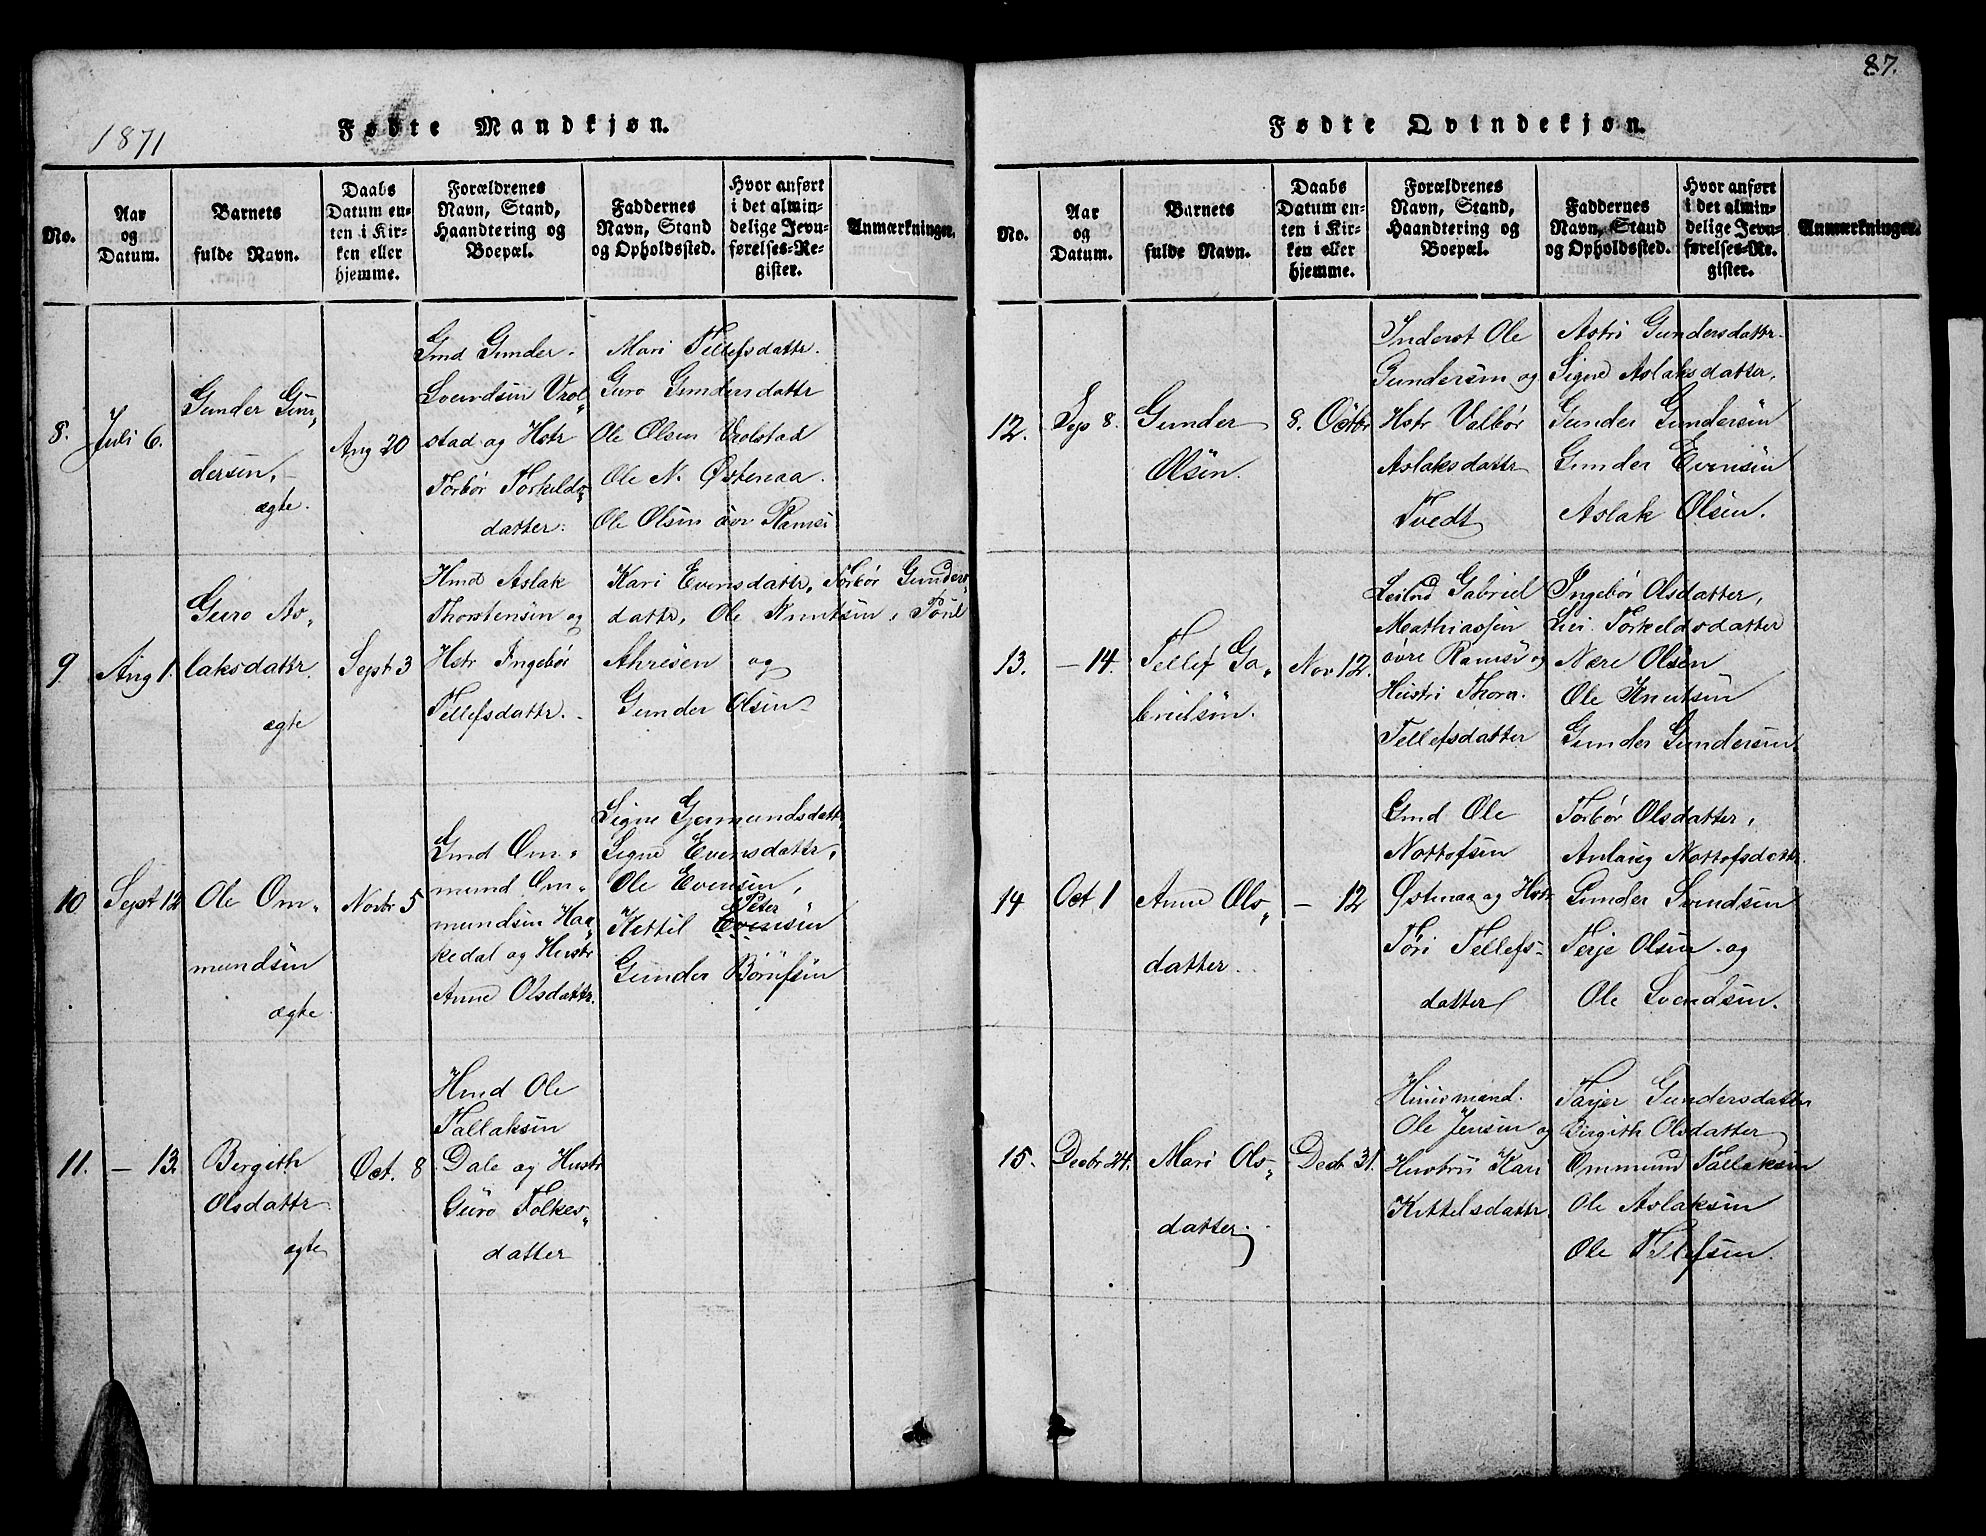 1871
Fødte Mandkjøn.
No.
Aar
og
Datum.
Barnets
fulde Navn.
Daabs
Datum en-
ten i Kir-
ken eller
hjemme.
Forældrenes
Navn, Stand,
Haandtering og
Boepæl.
Faddernes
Navn, Stand
og Opholdssted.
Hvor anført
i det almin-
delige Jevn-
førelses-Re-
gister.
Anmærkninger.
8.
Juli 6.
Gunder Gun„
dersen.
ægte.
Aug 20
Gmd Gunder
Svendsen Vrol„
stad og Hstr
Torbør Torkelds„
datter.
Mari Tellefsdattr.
Guro Gundersdattr
Ole Olsen Vrolstad
Ole N. Østenaa.
Ole Olsen øvr Ramsi
9
Aug 1.
Guro As„
laksdattr.
ægte
Sept 3
Hmd Aslak
Thorstensen og
Hstr Ingebør
Tellefsdattr.
Kari Evensdattr, Torbør Gunders„
dattr, Ole Knutsen, Toril
Ahresen og
Gunder Olsen
10
Sept 12
Ole Om„
mundsen
ægte.
Novbr 5
Gmd Om„
mund Om„
mundsen Haa„
kedal og Hustr
Anne Olsdattr.
Signe Gjermundsdattr,
Signe Evensdattr,
Ole Evensen,
Peter
Kittil Evensen
Gunder Börufsen
11.
— 13.
Bergith
Olsdattr
ægte
Oct. 8
Hmd Ole
Tallaksen
Dale og Hustr
Guro Folkes„
datter
87.
Fødte Qvindekjøn.
No.
Aar
og
Datum.
Barnets
fulde Navn.
Daabs
Datum en-
ten i Kir-
ken eller
hjemme.
Forældrenes
Navn, Stand,
Haandtering og
Boepæl.
Faddernes
Navn, Stand
og Opholdssted.
Hvor anført
i det almin-
delige Jevn-
førelses-Re-
gister.
Anmærkninger.
12.
Sep 8.
Gunder
Olsen.
8. Octbr
Inderst Ole
Gundersen og
Hstr Valbør
Aslaksdattr
Tvedt
Astri Gundersdattr.
Signe Aslaksdatter,
Gunder Gundersen
Gunder Evensen
Aslak Olsen.
13.
— 14.
Tellef Ga„
brielsen.
Nov 12.
Leilnd Gabriel
Mathiassen
øvre Ramse og
Hustri Thora
Tellefsdatter
Ingebør Olsdatter,
Livi Torkeldsdatter
Nære Olsen
Ole Knutsen
Gunder Gundersen
14
Oct 1
Anne Ols„
datter.
— 12
Gmd Ole
Nottofsen
Østenaa og Hstr
Tori Tellefs-
datter
Torbør Olsdatter,
Anlaug Nottofsdattr.
Gunder Svendsen
Terje Olsen og
Ole Svendsen.
15.
Decbr 24.
Mari Ols„
datter.
Decbr 31.
Huusmand
Ole Jensen og
Hustru Kari
Kittelsdattr.
Tarjer Gundersdatter
Birgith Olsdatter
Ommund Tallaksen
Ole Aslaksen
Ole Tellefsen.